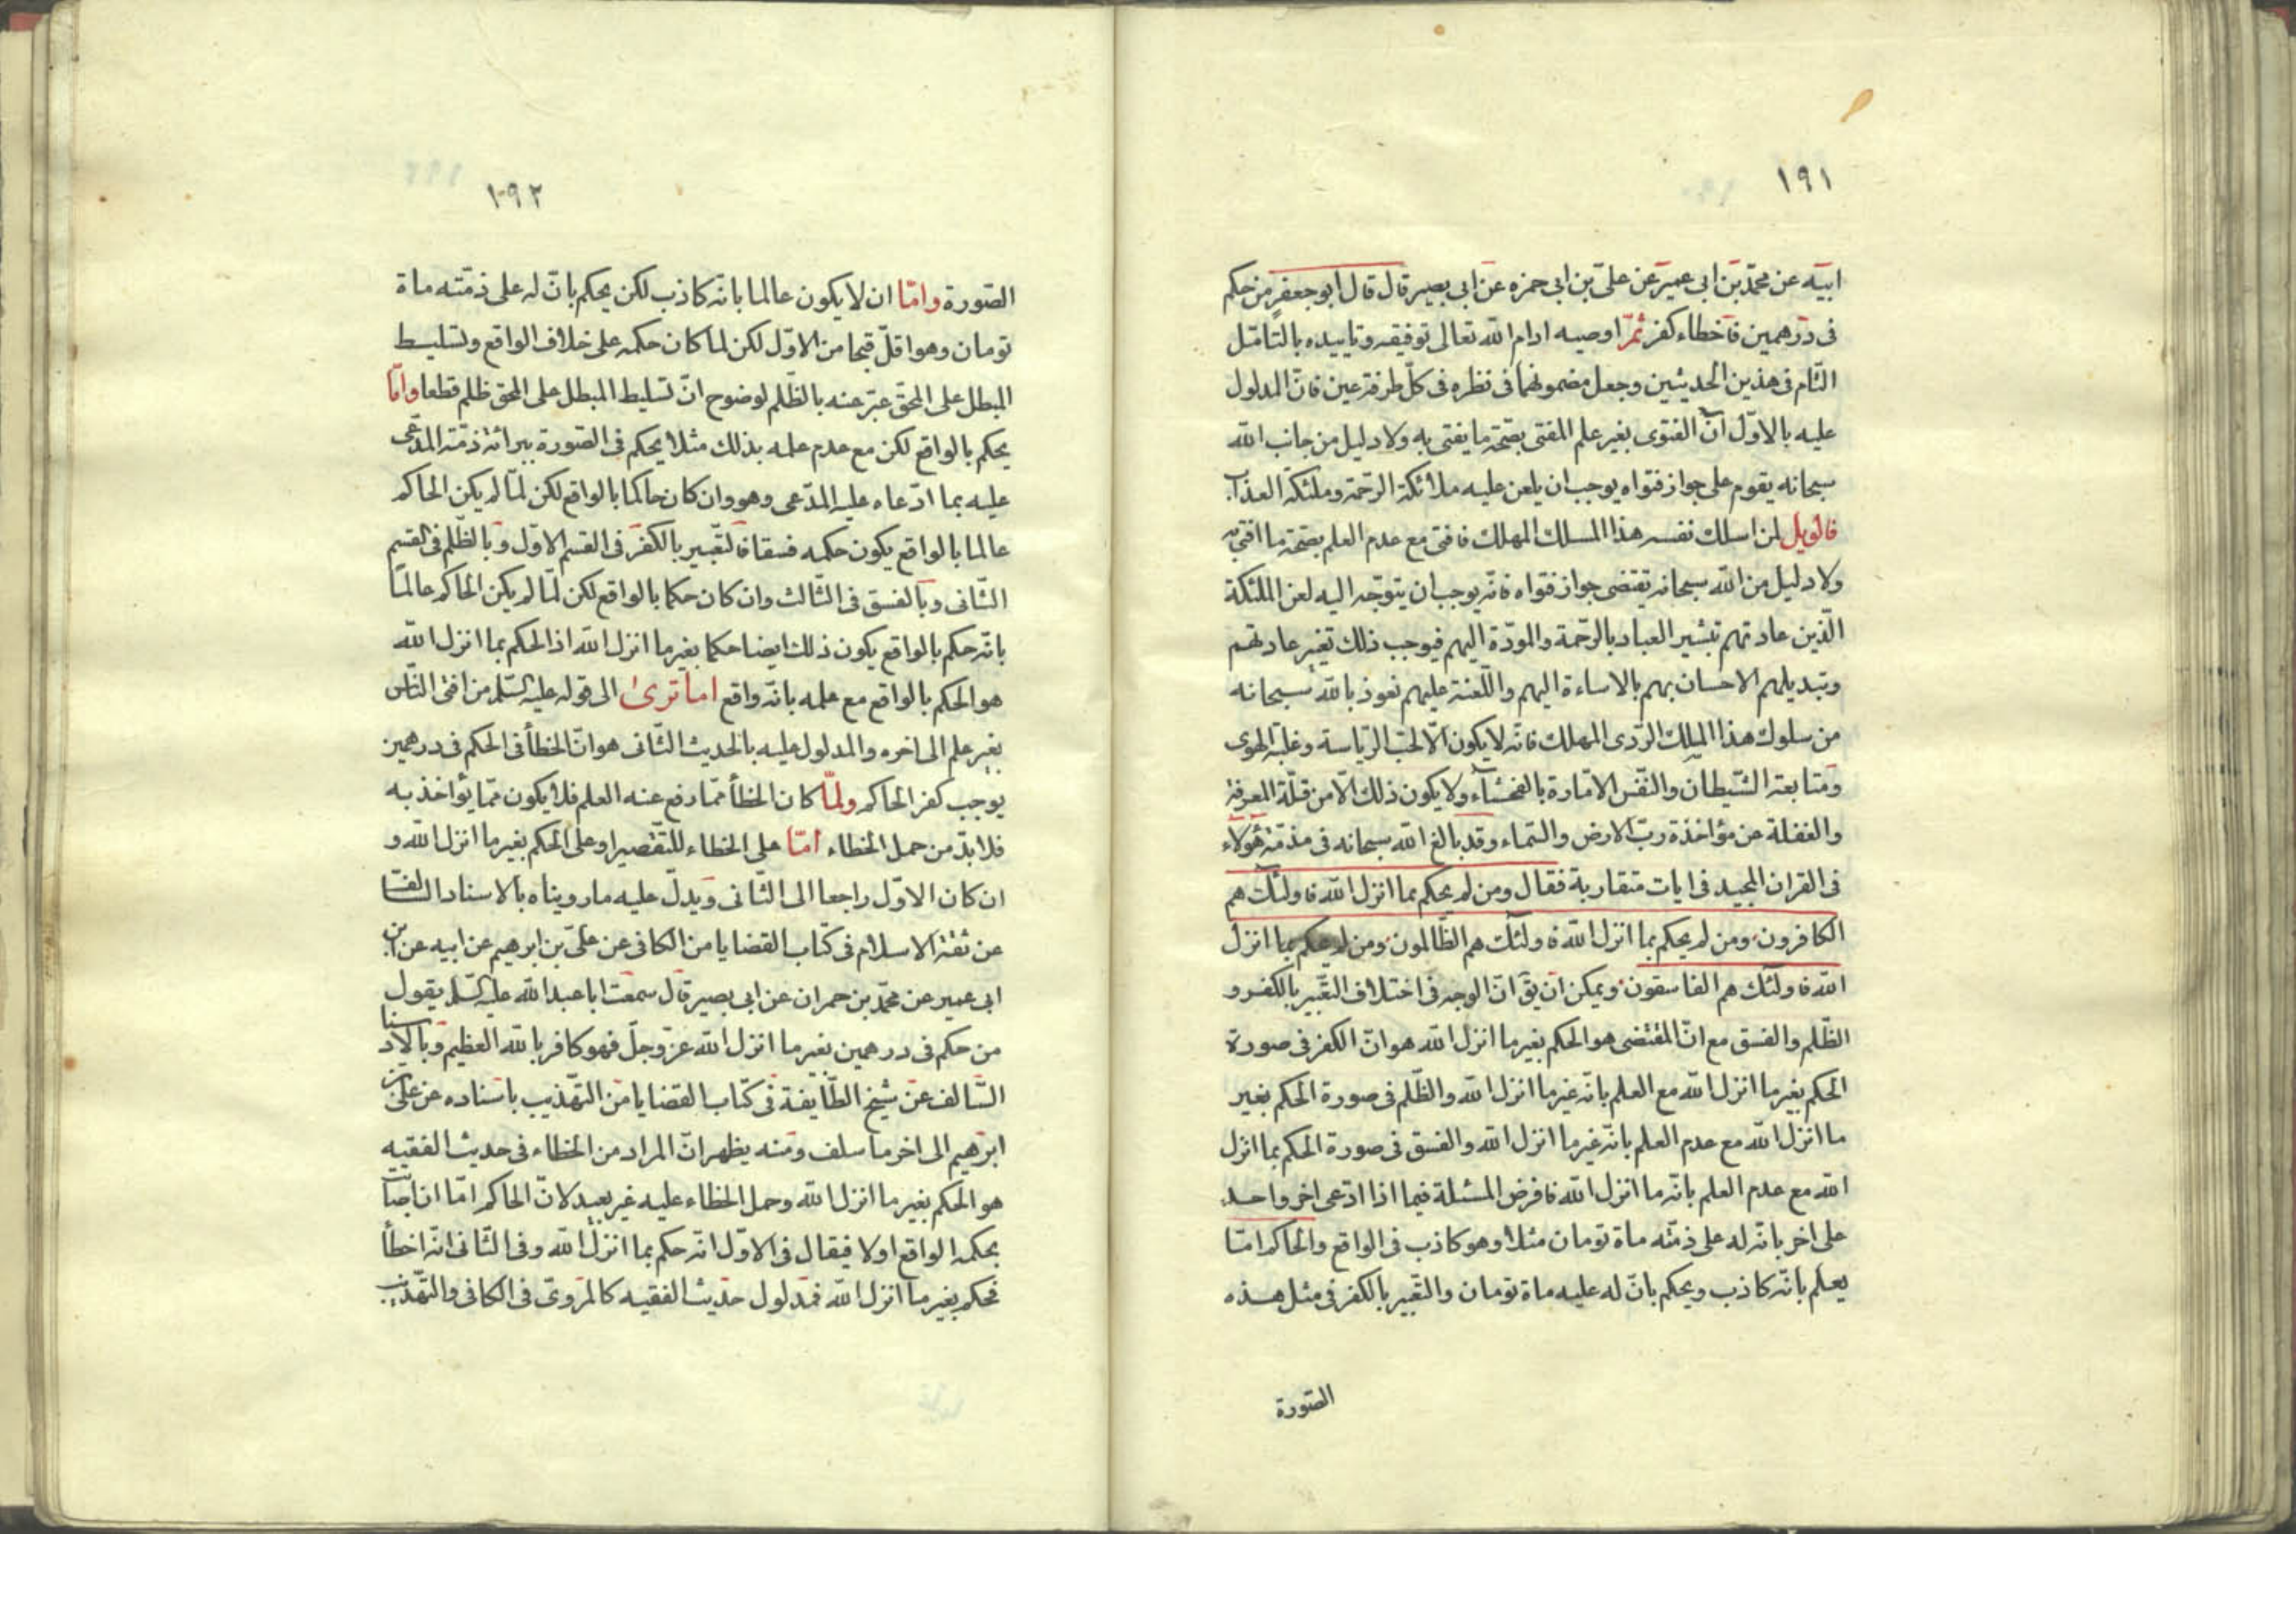 ١٩١
ابيه عن محمّد بن ابى عمير عن علىّ بن ابى حمزه عن ابى بصير قال قال ابو جعفر من حكم
فى درهمين فاخطاء كفر ثمّ اوصيه ادام اللّه تعالى توفيقه وتاييده بالتامّل
التّام فى هذين الحديثين وجعل مضمونهما فى نظره فى كلّ طرفة عين فانّ المدلول
عليه بالاوّل انّ الفتوى بغير علم المفتى بصحّة ما يفتى به ولا دليل من جانب اللّه
سبحانه يقوم على جواز فتواه يوجب ان يلعن عليه ملائكة الرّحمة وملئكة العذاب
فالويل لمن اسلك نفسه هذا المسلك المهلك فافتى مع عدم العلم بصحّة ما افتى به
ولا دليل من اللّه سبحانه تقتضى جواز فتواه فانّه يوجب ان يتوجّه اليه لعن الملئكة
الّذين عادتهم تبشير العباد بالرّحمة والمودّة اليهم فيوجب ذلك تغير عادتهم
وتبديلهم الاحسان بهم بالاساءة اليهم واللّعنة عليهم نعوذ باللّه سبحانه
من سلوك هذا المسلك الرّدى المهلك فانّه لا يكون الّا لحبّ الرّياسة وغلبة الهوى
ومتابعة الشّيطان والنّفس الامّارة بالفحشاء ولا يكون ذلك الّا من قلّة المعرفة
والغفلة عن مؤاخذة ربّ الارض والسّماء وقد بالغ اللّه سبحانه فى مذمّة هؤلاء
فى القران المجيد فى ايات متقاربة فقال ومن لم يحكم بما انزل اللّه فاولئك هم
الكافرون ومن لم يحكم بما انزل اللّه فاولئك هم الظّالمون ومن لم يحكم بما انزل
اللّه فاولئك هم الفاسقون ويمكن ان يق انّ الوجه فى اختلاف التّعبير بالكفر و
الظّلم والفسق مع انّ المقتضى هو الحكم بغير ما انزل اللّه هو انّ الكفر فى صورة
الحكم بغير ما انزل اللّه مع العلم بانّه غير ما انزل اللّه والظّلم فى صورة الحكم بغير
ما انزل اللّه مع عدم العلم بانّه غير ما انزل اللّه والفسق فى صورة الحكم بما انزل
اللّه مع عدم العلم بانّه ما انزل اللّه فافرض المسئلة فيما اذا ادّعى اخر واحد
على اخر بانّ له على ذمّته مأة تومان مثلا وهو كاذب فى الواقع والحاكم امّا
يعلم بانّه كاذب ويحكم بانّ له عليه مأة تومان والتّعبير بالكفر فى مثل هذه
الصّورة
١٩٢
الصّورة وامّا ان لا يكون عالما بانه كاذب لكن يحكم بانّ له على ذمّته مأة
تومان وهو اقلّ قبحا من الاوّل لكن لما كان حكمه على خلاف الواقع وتسليط
المبطل على المحقّ عبّر عنه بالظّلم لوضوح انّ تسليط المبطل على المحقّ ظلم قطعا وامّا
يحكم بالواقع لكن مع عدم علمه بذلك مثلا يحكم فى الصّورة ببرائة ذمّة المدّعى
عليه بما ادّعاه عليه المدّعى وهو وان كان حاكما بالواقع لكن لمّا لم يكن الحاكم
عالما بالواقع يكون حكمه فسقا فالتّعبير بالكفر فى القسم الاوّل وبالظّلم فى القسم
الثّانى وبالفسق فى الثّالث وان كان حكما بالواقع لكن لمّا لم يكن الحاكم عالما
بانّه حكم بالواقع يكون ذلك ايضا حكما بغير ما انزل اللّه اذ الحكم بما انزل اللّه
هو الحكم بالواقع مع علمه بانّه واقع اما ترى الى قوله عليه السّلم من افتى النّاس
بغير علم الى اخره والمدلول عليه بالحديث الثّانى هو انّ الخطأ فى الحكم فى درهمين
يوجب كفر الحاكم ولمّا كان الخطأ ممّا رفع عنه العلم فلا يكون ممّا يؤاخذ به
فلا بدّ من حمل الخطاء امّا على الخطاء للتّقصير او على الحكم بغير ما انزل اللّه و
ان كان الاوّل راجعا الى الثّانى ويدلّ عليه ما رويناه بالاسناد السّالف
عن ثقة الاسلام فى كتاب القضايا من الكافى عن علىّ بن ابرهيم عن ابيه عن ابن
ابى عمير عن محمّد بن حمران عن ابى بصير قال سمعت ابا عبد اللّه عليه السّلم يقول
من حكم فى درهمين بغير ما انزل اللّه عزّ وجلّ فهو كافر باللّه العظيم وبالاسناد
السّالف عن شيخ الطّايفة فى كتاب القضايا من التّهذيب باسناده عن علىّ بن
ابرهيم الى اخر ما سلف ومنه يظهر انّ المراد من الخطاء فى حديث الفقيه
هو الحكم بغير ما انزل اللّه وحمل الخطاء عليه غير بعيد لانّ الحاكم امّا ان اصاب
بحكمه الواقع او لا فيقال فى الاوّل انّه حكم بما انزل اللّه وفى الثّانى انّه اخطأ
فحكم بغير ما انزل اللّه فمدلول حديث الفقيه كالمروىّ فى الكافى والتّهذيب